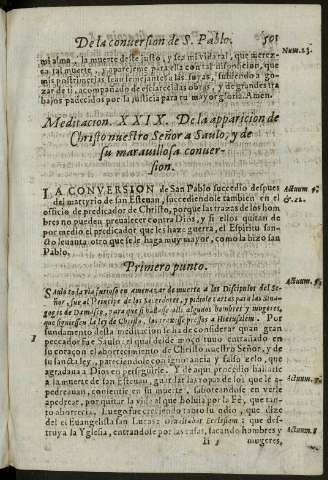 De la conuersion de S. Pablo. 501
mi alma, la muerte deste justo, y sea mi vida tal, que merez-
ca tal muerte, y aparejeme para ella con tal disposicion, que
mis postrimerias sean semejantes a las suyas, subiendo a go-
zar de ti, acompañado de esclarecidas obras, y de grandes tra
bajos padecidos por la justicia para tu mayor gloria. Amen.
Num. 23.
Meditacion. XXIX. De la apparicion de
Christo nuestro Señor a Saulo, y de
su marauillosa conuer-
sion.
LA CONVERSION de San Pablo succedio despues
del martyrio de san Esteuan, succediendole tambien en el
officio de predicador de Christo, porque las trazas de los hom
bres no pueden preualecer contra Dios, y si ellos quitan de
por medio el predicador que les haze guerra, el Espiritu san-
to leuanta otro que se la haga muy mayor, como la hizo san
Pablo.
Actuum 9.
& 22.
Primero punto.
Saulo toda via furioso en amenazar de muerte a los Discipulos del Se-
ñor, fue al Principe de los Sacerdotes, y pidiole cartas para las Sina-
gogas de Damasco, para que si hallasse alli algunos hombres y mugeres,
que siguiessen la ley de Christo, los truxesse presos a Hierusalem. Por
fundamento desta meditacion se ha de considerar quan gran
peccador fue Saulo: el qual desde moço tuuo entrañado en
su coraçon el aborrecimiento de Christo nuestro Señor, y de
su sancta ley, pareciendole con ignorancia y falso zelo, que
agradaua a Dios en perseguirle. Y de aqui procedio hallarse
a la muerte de san Esteuan, guardar las ropas de los que le a-
pedreauan, consentir en su muerte, saboreandose en verle
apedrear, por quitar la vida al que boluia por la Fè, que tan-
to aborrecia. Luego fue creciendo tanto su odio, que dize
del el Euangelista san Lucas: Deuastabat Ecclesiam: que des-
truya la Yglesia, entrandose por las casas, sacando hombres y
Actuum. 9.
Actuum. 7.
Actuum. 8
Ii 3 mugeres,